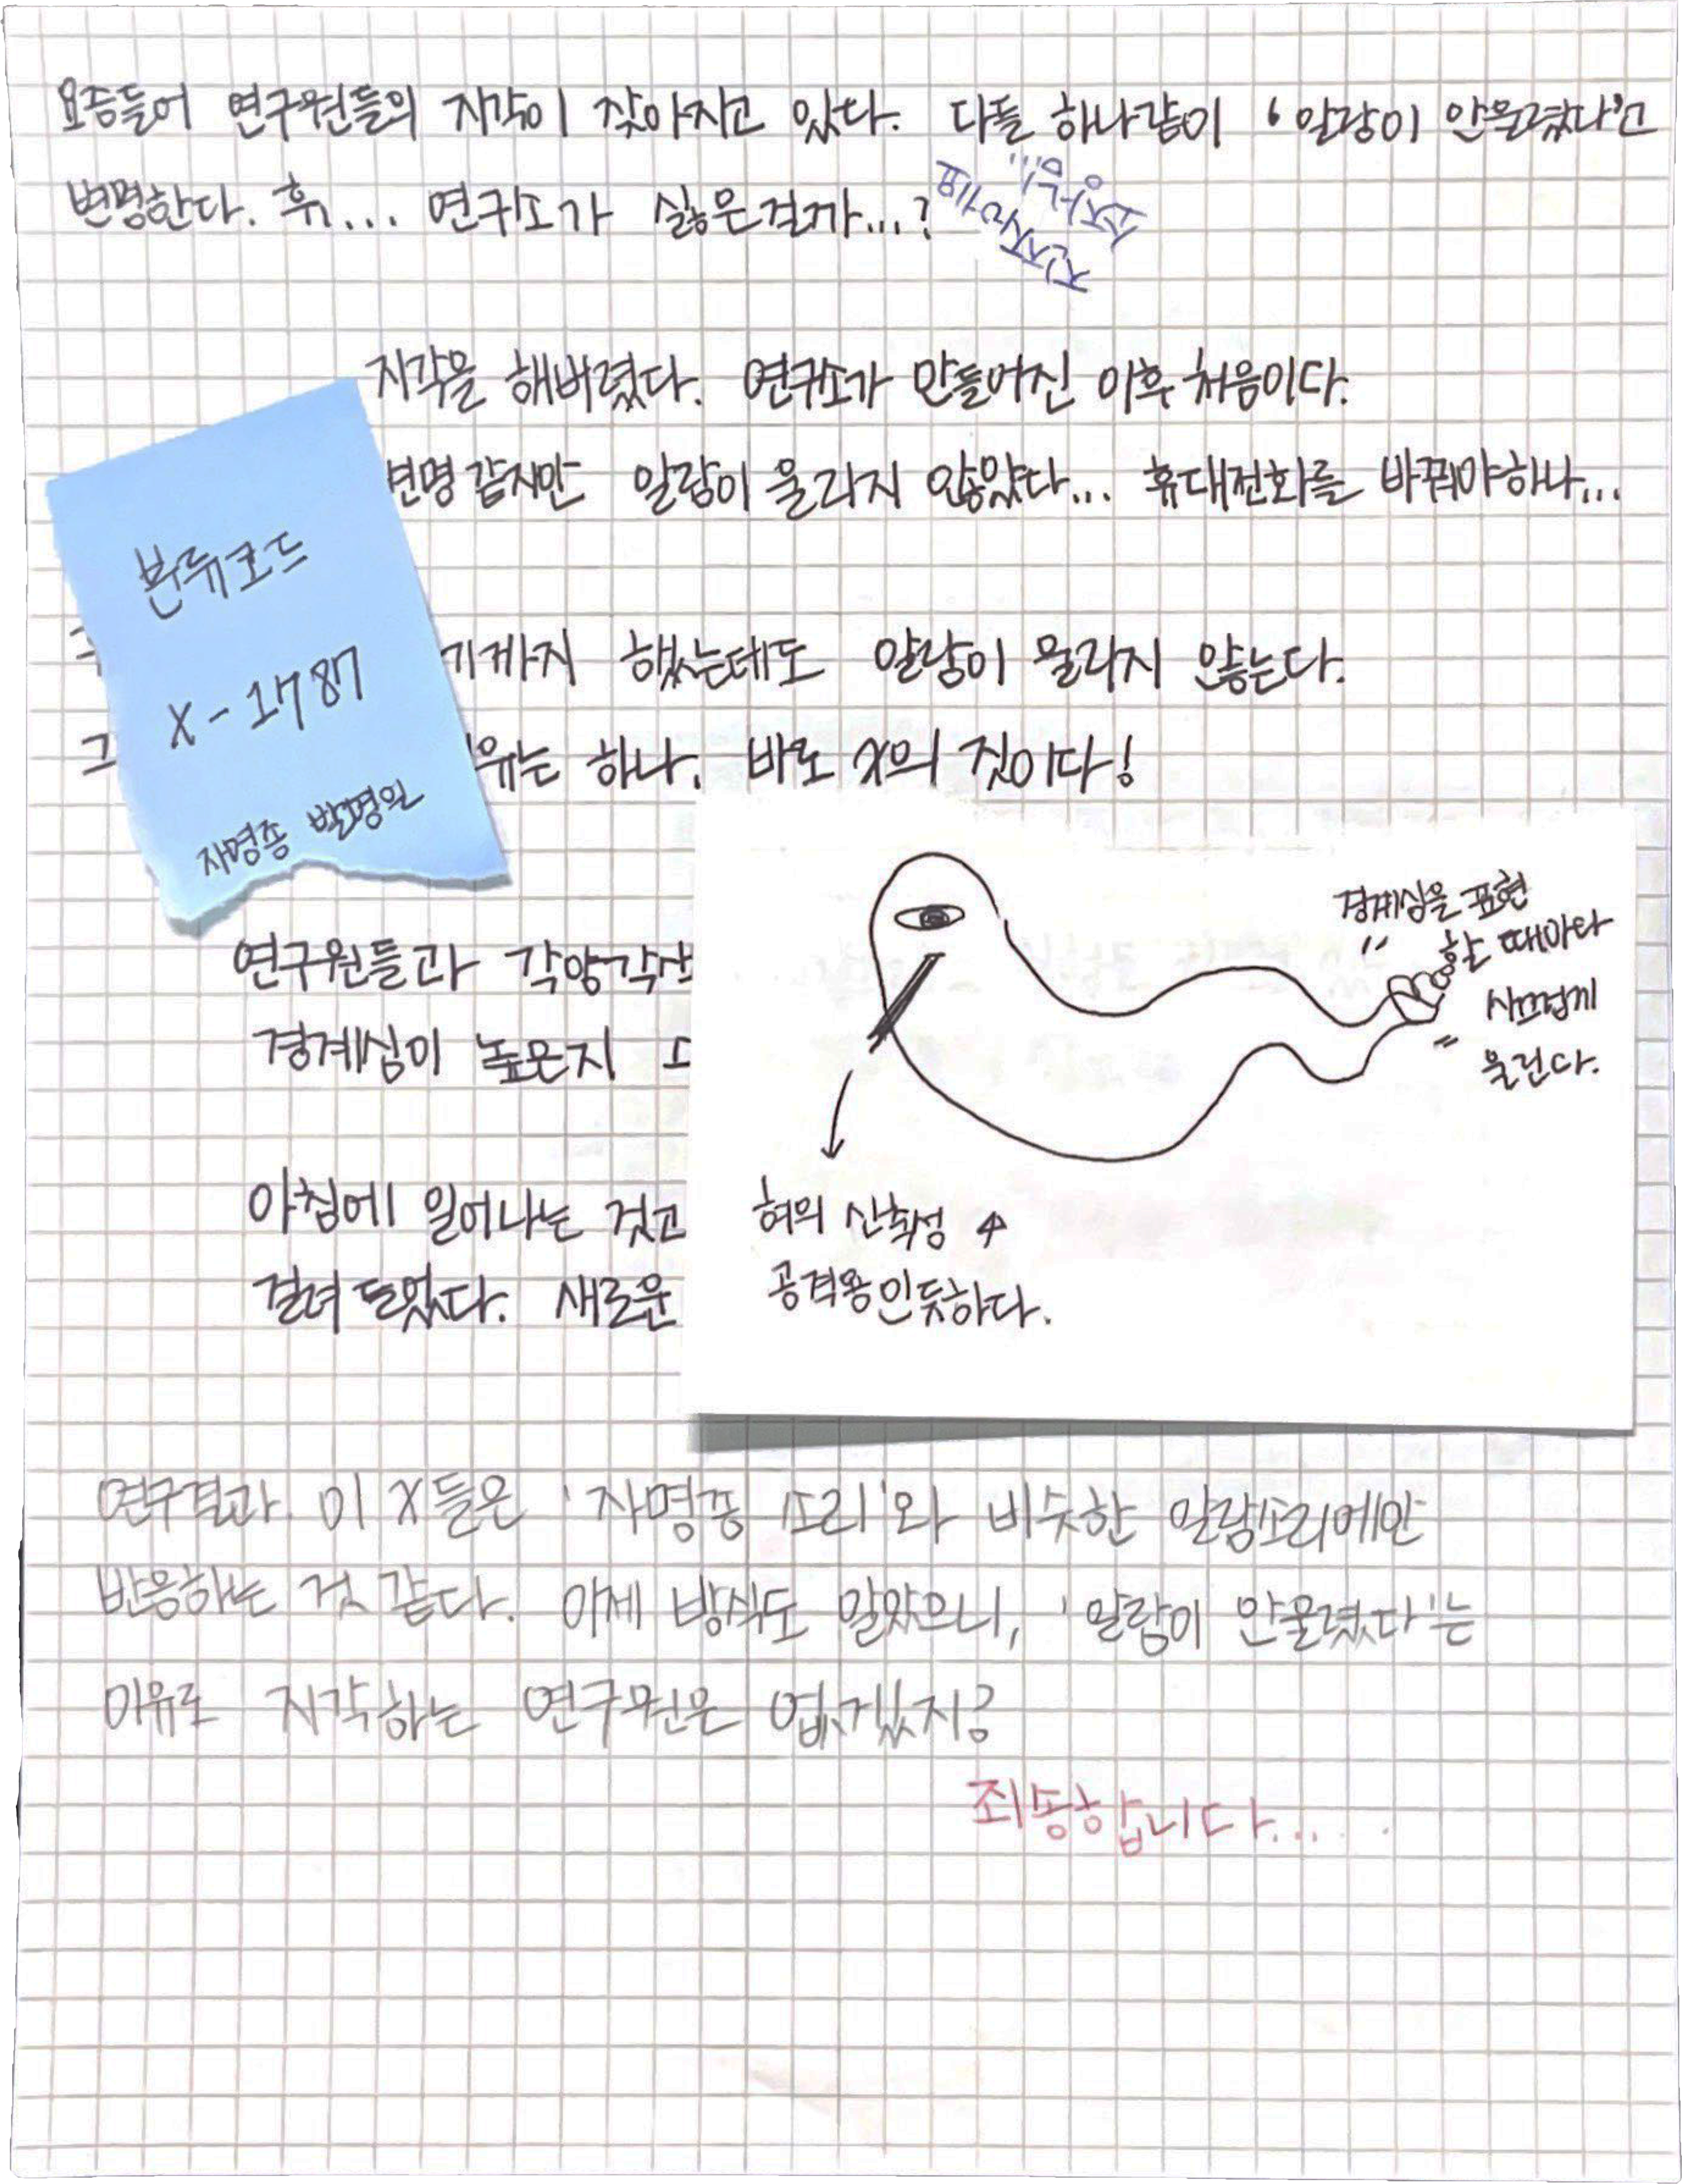 요즘들어 연구원들의 지각이 잦아지고 있다. 다들 하나같이 '알람이 안울렸다'고
변명한다. 휴... 연구소가 싫은걸까...?
지각을 해버렸다. 연구소가 만들어진 이후 처음이다.
변명 같지만 알람이 울리지 않았다... 휴대전화를 바꿔야하나...
분류코드
X-1787
자명종 발명원
기까지 했는데도 알람이 울리지 않는다.
그
유는 하나. 바로 X의 짓이다!
경계심을 표현
할 때마다
시끄럽게
울린다.
연구원들과 각양각
경계심이 높은지
아침에 일어나는 것고
걸려 들었다. 새로운
혀의 신축성 ↑
공격용인듯하다.
연구결과. 이 X들은 '자명종 소리'와 비슷한 알람소리에만
반응하는 것 같다. 이제 방식도 알았으니, '알람이 안울렸다'는
이유로 지각하는 연구원은 없겠지?
죄송합니다...